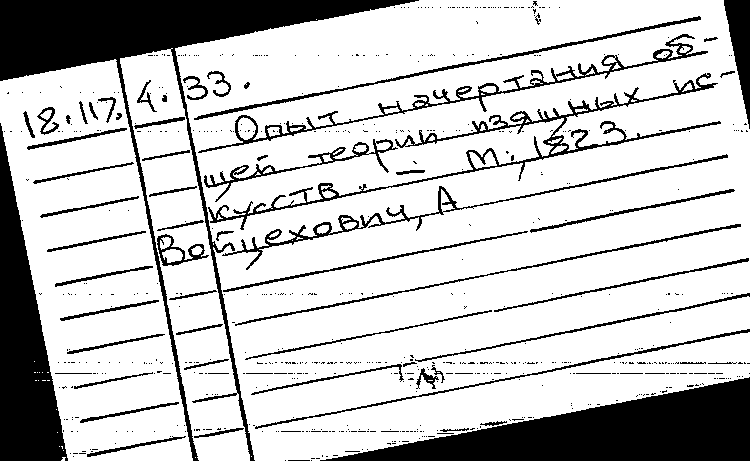 18.117. 4. 33.
Опыт начертания об-
щей теории изящных ис-
кусств. — М., 1823.
Войцехович, А